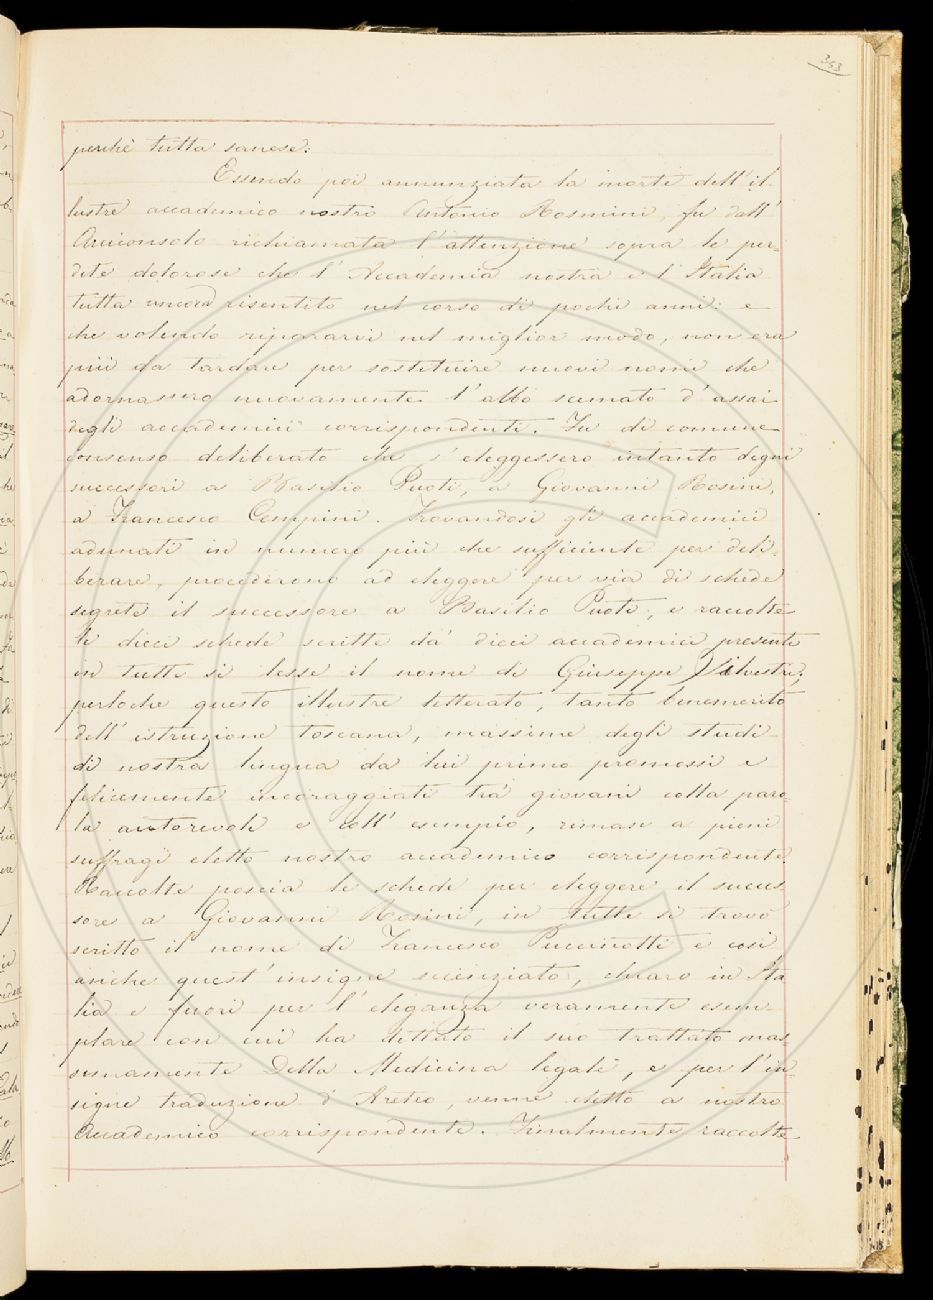 353
perchè tutta sanese.
Essendo poi annunziata la morte dell'il-
lustre accademico nostro Antonio Rosmini, fu dall'
Arciconsolo richiamata l'attenzione sopra le per-
dite dolorose che l'Accademia nostra e l'Italia
tutta risentito nel corso di pochi anni: e
che volendo ripararvi nel miglior modo, non era
più da tardare per sostituire nuovi nomi che
adornassero nuovamente l'albo scemato d'assai
degli accademici corrispondenti. Fu di comune
consenso deliberato che s'eleggessero intanto degni
successori a Basilio Puoti, a Giovanni Rosini,
a Francesco Cempini. Trovandosi gli accademici
adunati in numero più che sufficiente per deli-
berare, procederono ad eleggere per via di schede
segrete il successore a Basilio Puoti; e raccolte
le dieci schede scritte da' dieci accademici presenti
in tutte si lesse il nome di Giuseppe Silvestri;
perloche questo illustre letterato, tanto benemerito
dell'istruzione toscana, massime degli studi
di nostra lingua da lui primo promossi e
felicemente incoraggiati tra' giovani colla paro-
la autorevole e coll'esempio, rimase a pieni
suffragi eletto nostro accademico corrispondente.
Raccolte poscia le schede per eleggere il succes-
sore a Giovanni Rosini, in tutte si trovò
scritto il nome di Francesco Puccinotti e così
anche quest'insigne scienziato, chiaro in Ita
lia e fuori per l'eleganza veramente esem-
plare con cui ha dettato il suo trattato mas-
simamente Della Medicina legale, e per l'in-
signe traduzione d'Areteo, venne eletto a nostro
Accademico corrispondente. Finalmente raccolte